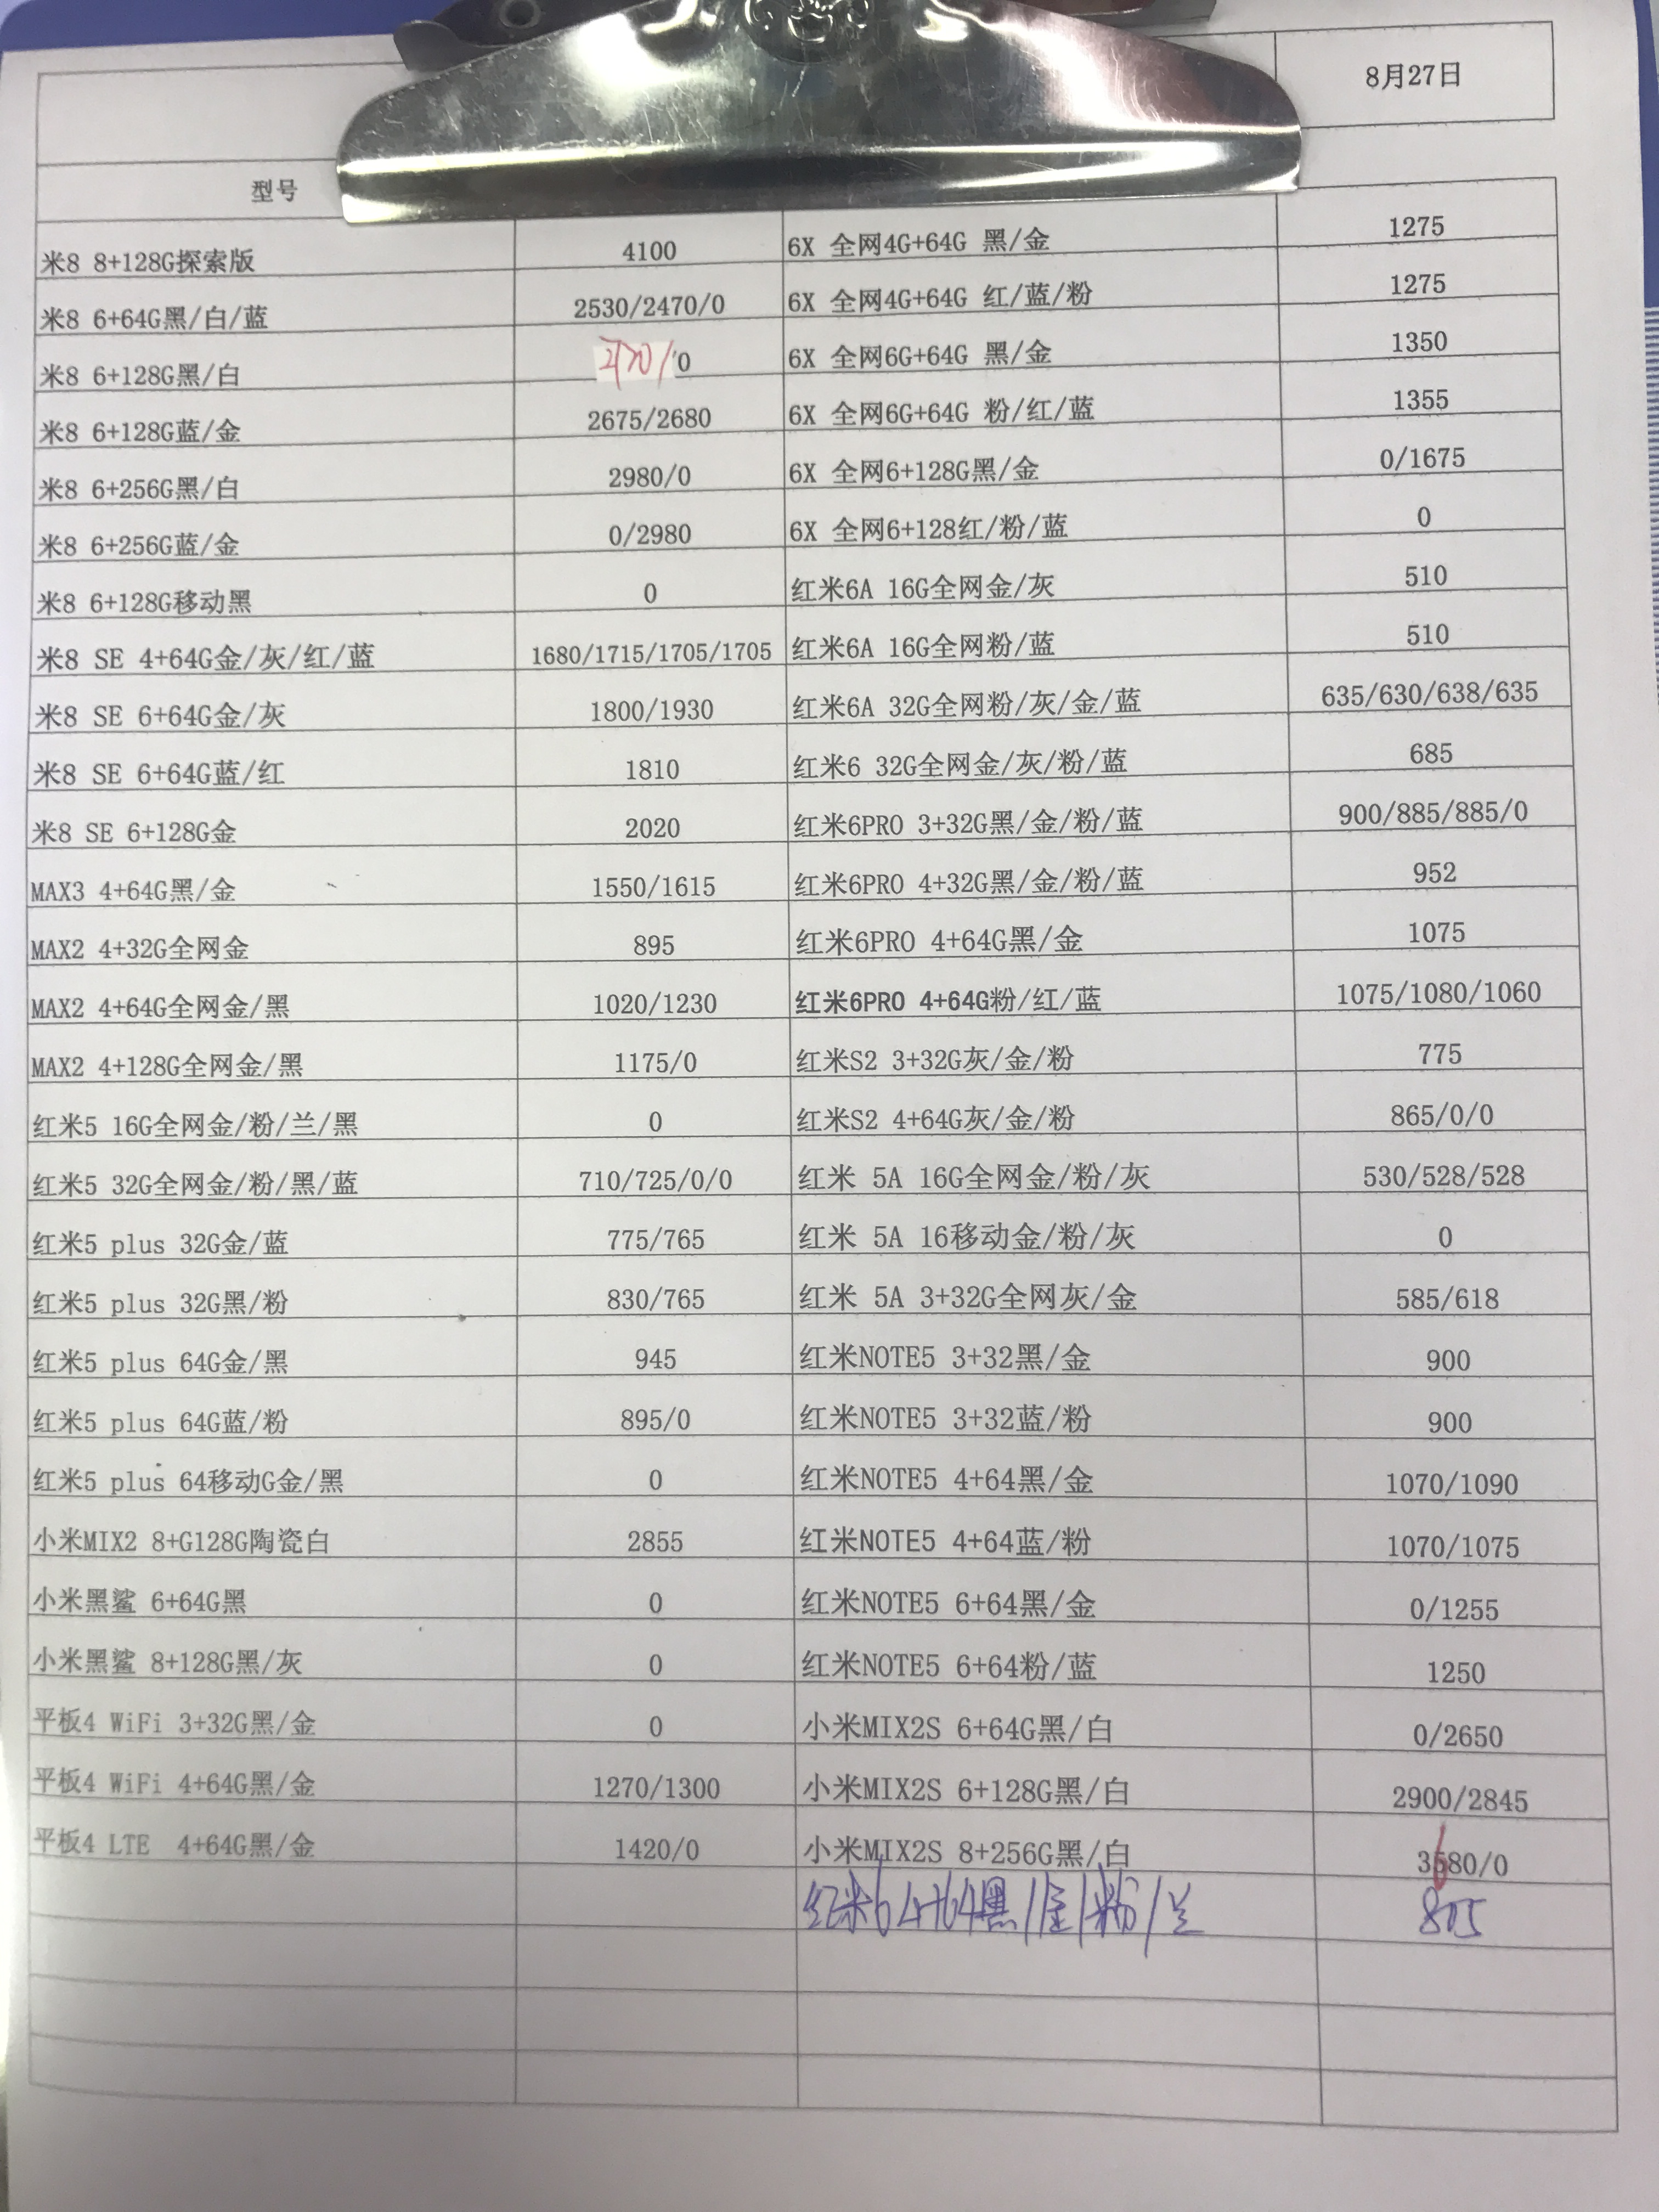 8月27日
型号
米8 8+128G探索版 4100 6X 全网4G+64G 黑/金 1275
米8 6+64G黑/白/蓝 2530/2470/0 6X 全网4G+64G 红/蓝/粉 1275
米8 6+128G黑/白 /0 6X 全网6G+64G 黑/金 1350
米8 6+128G蓝/金 2675/2680 6X 全网6G+64G 粉/红/蓝 1355
米8 6+256G黑/白 2980/0 6X 全网6+128G黑/金 0/1675
米8 6+256G蓝/金 0/2980 6X 全网6+128红/粉/蓝 0
米8 6+128G移动黑 0 红米6A 16G全网金/灰 510
米8 SE 4+64G金/灰/红/蓝 1680/1715/1705/1705 红米6A 16G全网粉/蓝 510
米8 SE 6+64G金/灰 1800/1930 红米6A 32G全网粉/灰/金/蓝 635/630/638/635
米8 SE 6+64G蓝/红 1810 红米6 32G全网金/灰/粉/蓝 685
米8 SE 6+128G金 2020 红米6PRO 3+32G黑/金/粉/蓝 900/885/885/0
MAX3 4+64G黑/金 1550/1615 红米6PRO 4+32G黑/金/粉/蓝 952
MAX2 4+32G全网金 895 红米6PRO 4+64G黑/金 1075
MAX2 4+64G全网金/黑 1020/1230 红米6PRO 4+64G粉/红/蓝 1075/1080/1060
MAX2 4+128G全网金/黑 1175/0 红米S2 3+32G灰/金/粉 775
红米5 16G全网金/粉/兰/黑 0 红米S2 4+64G灰/金/粉 865/0/0
红米5 32G全网金/粉/黑/蓝 710/725/0/0 红米 5A 16G全网金/粉/灰 530/528/528
红米5 plus 32G金/蓝 775/765 红米 5A 16移动金/粉/灰 0
红米5 plus 32G黑/粉 830/765 红米 5A 3+32G全网灰/金 585/618
红米5 plus 64G金/黑 945 红米NOTE5 3+32黑/金 900
红米5 plus 64G蓝/粉 895/0 红米NOTE5 3+32蓝/粉 900
红米5 plus 64移动G金/黑 0 红米NOTE5 4+64黑/金 1070/1090
小米MIX2 8+G128G陶瓷白 2855 红米NOTE5 4+64蓝/粉 1070/1075
小米黑鲨 6+64G黑 0 红米NOTE5 6+64黑/金 0/1255
小米黑鲨 8+128G黑/灰 0 红米NOTE5 6+64粉/蓝 1250
平板4 WiFi 3+32G黑/金 0 小米MIX2S 6+64G黑/白 0/2650
平板4 WiFi 4+64G黑/金 1270/1300 小米MIX2S 6+128G黑/白 2900/2845
平板4 LTE 4+64G黑/金 1420/0 小米MIX2S 8+256G黑/白 3680/0
红米6 4+64黑/金/粉/兰 805